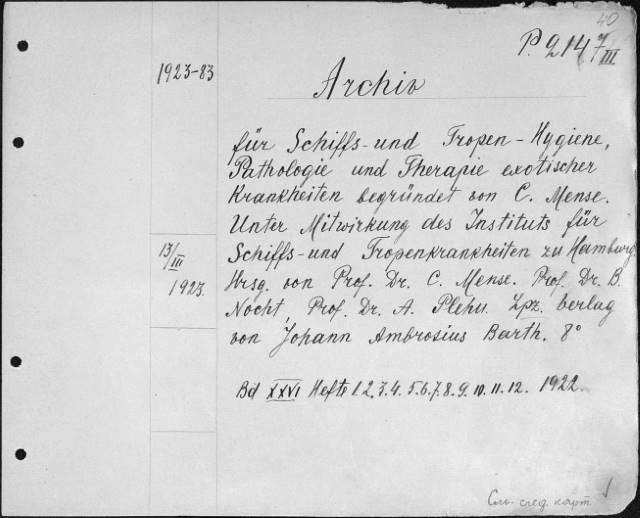 40
P. 214 7/III
1923-83
Archiv
für Schiffs- und Tropen-Hygiene,
Pathologie und Therapie exotischer
Krankheiten begründet von C. Mense.
Unter Mitwirkung des Instituts für
13/III
1923.
Schiffs- und Tropenkrankheiten zu Hamburg.
Hrsg. von Prof. Dr. C. Mense. Prof. Dr. B.
Nocht, Prof. Dr. A. Plehn. Lpz. Verlag
von Johann Ambrosius Barth. 8°
Bd XXVI Hefte 1.2.3.4.5.6.7.8.9.10.11.12. 1922.
См. след. карт.